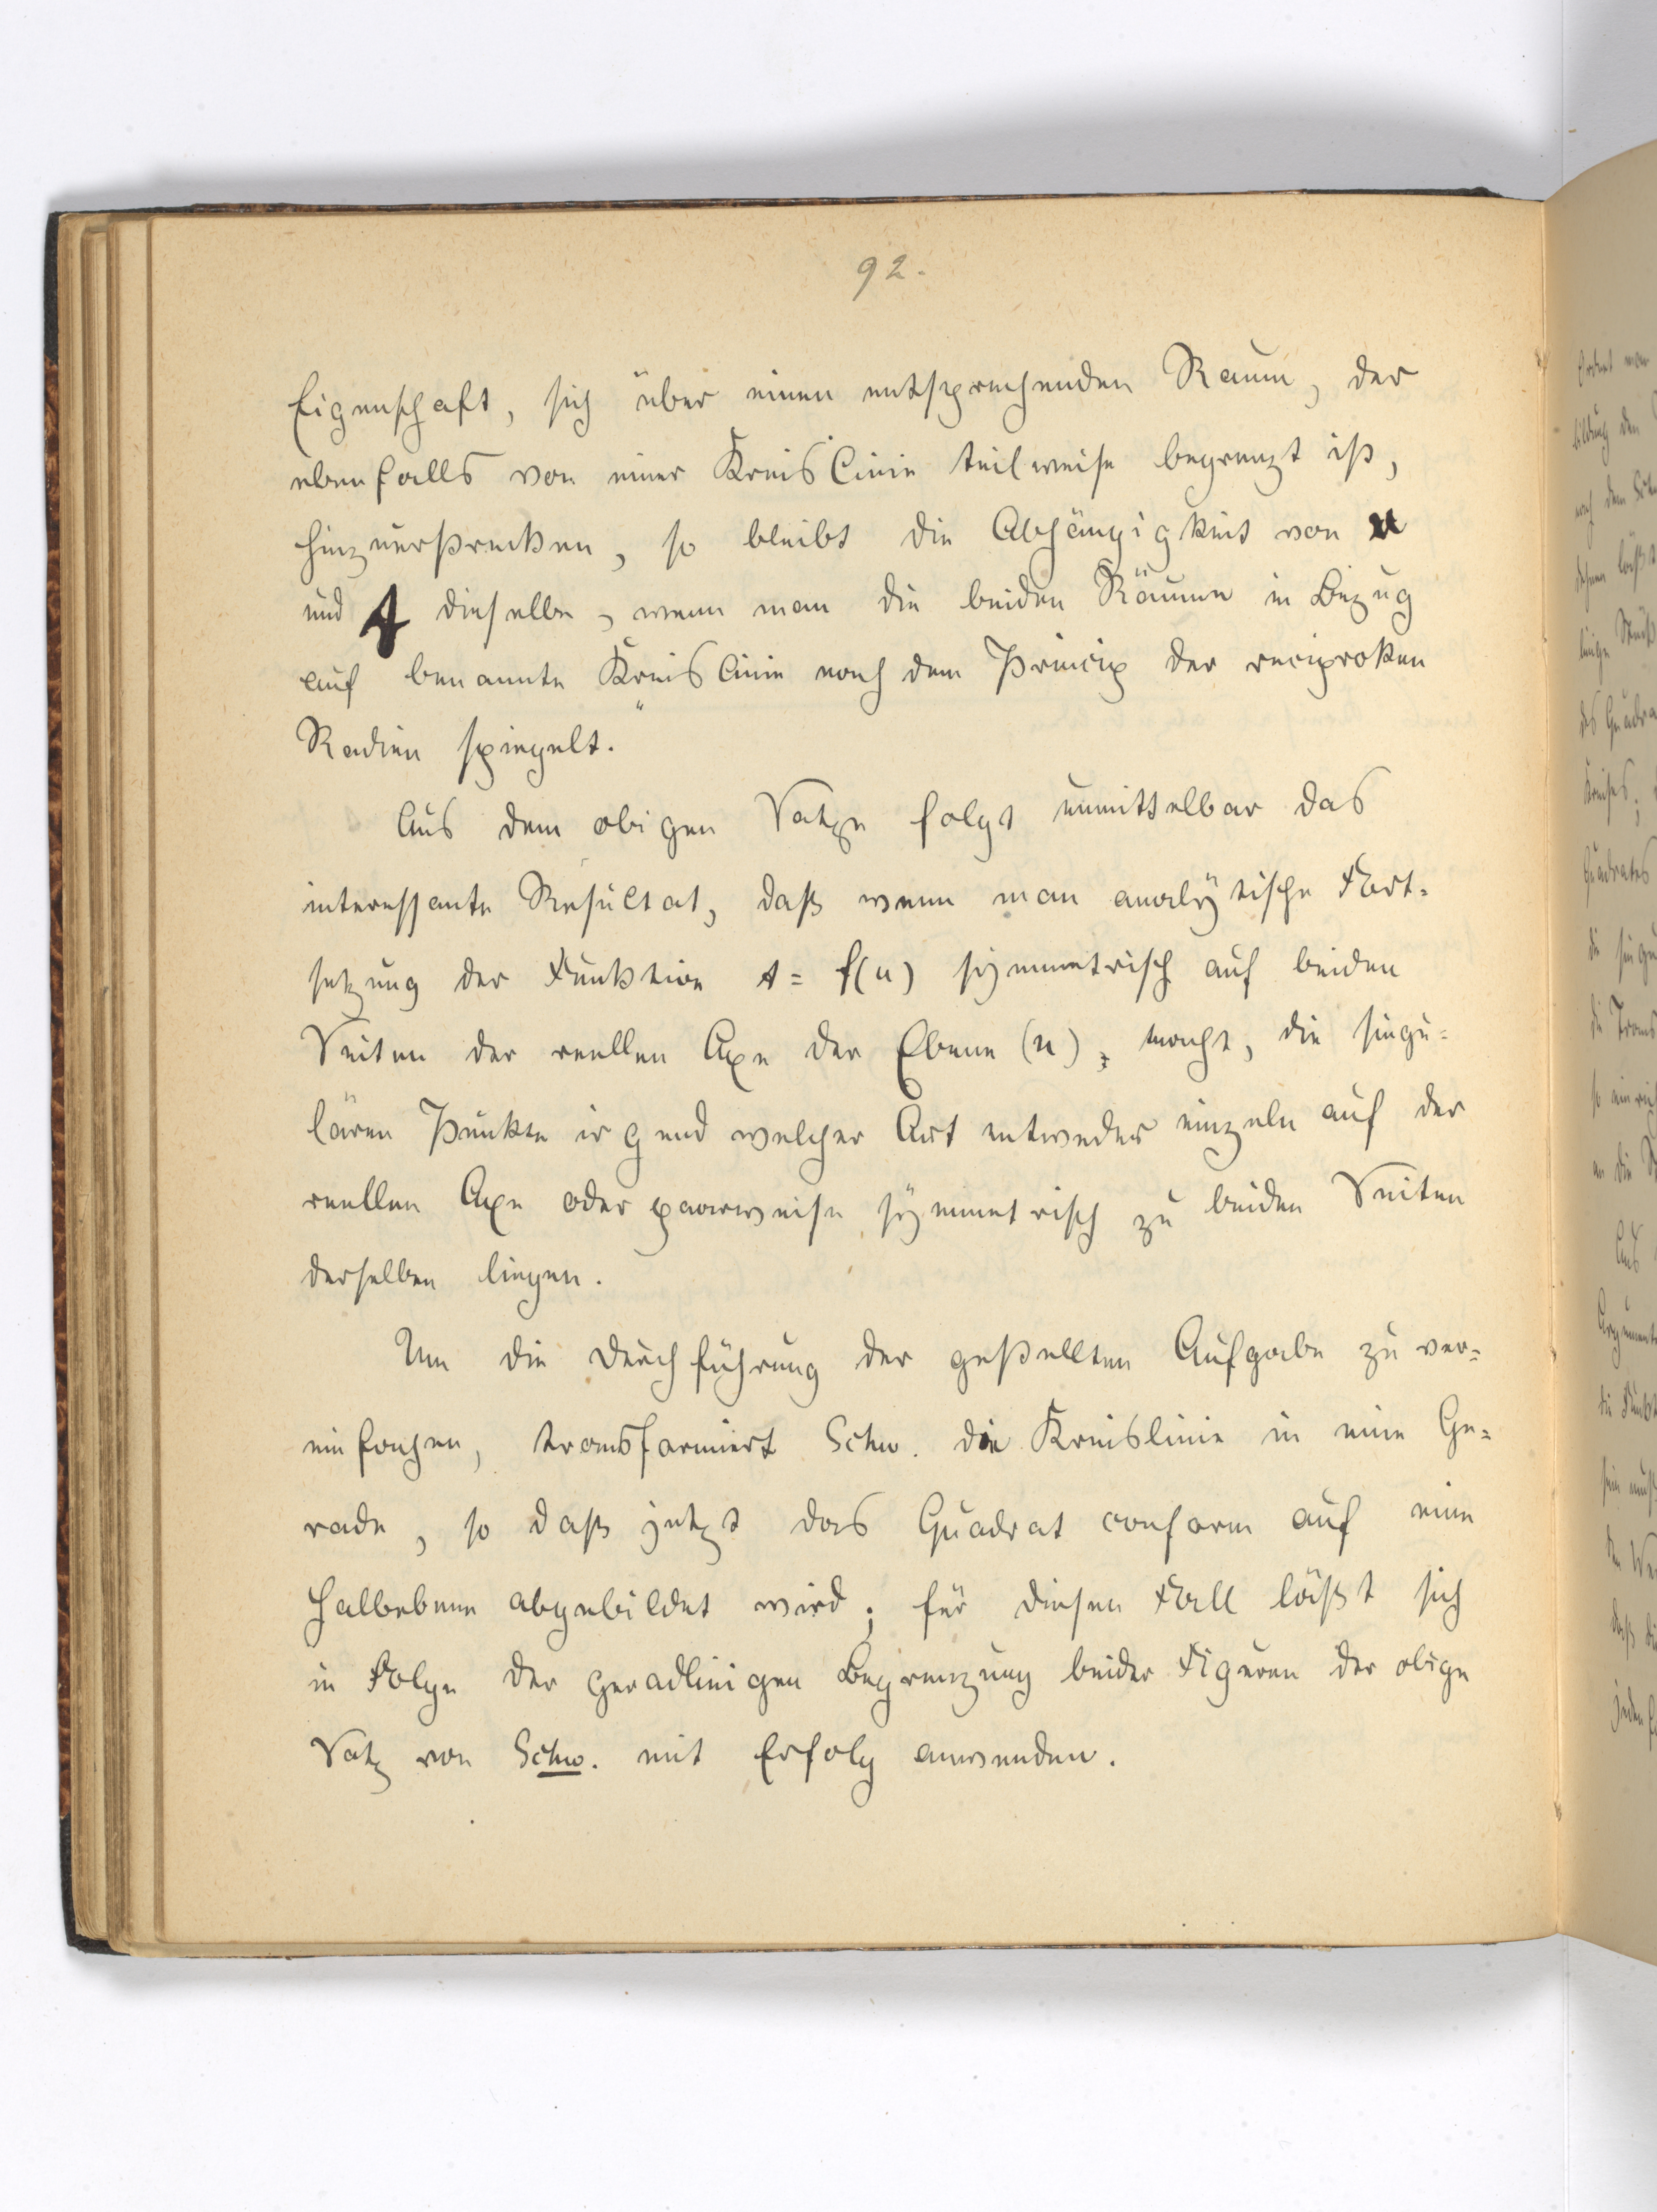 92.
Eigenschaft, sich über einen entsprechenden Raum, der
ebenfalls von einer Kreislinie teilweise begrenzt ist,
hinzuerstrecken, so bleibt die Abhängigkeit von u
und t dieselbe, wenn man die beiden Räume in Bezug
auf benannte Kreislinie nach dem Princip der reciproken
Radien spiegelt.
Aus dem obigen Satze folgt unmittelbar das
interessante Resultat, daß wenn man analytische Fort-
setzung der Funktion t = f(u) symmetrisch auf beiden
Seiten der reellen Axe der Ebene (u), macht, die singu-
lären Punkte irgend welcher Art entweder einzeln auf der
reellen Axe oder paarweise symmetrisch zu beiden Seiten
derselben liegen.
Um die Durchführung der gestellten Aufgabe zu ver-
einfachen, transformiert Schw. die Kreislinie in eine Ge-
rade, so daß jetzt das Quadrat conform auf eine
Halbebene abgebildet wird; für diesen Fall läßt sich
in Folge der geradlinigen Begrenzung beider Figuren der obige
Satz von Schw. mit Erfolg anwenden.